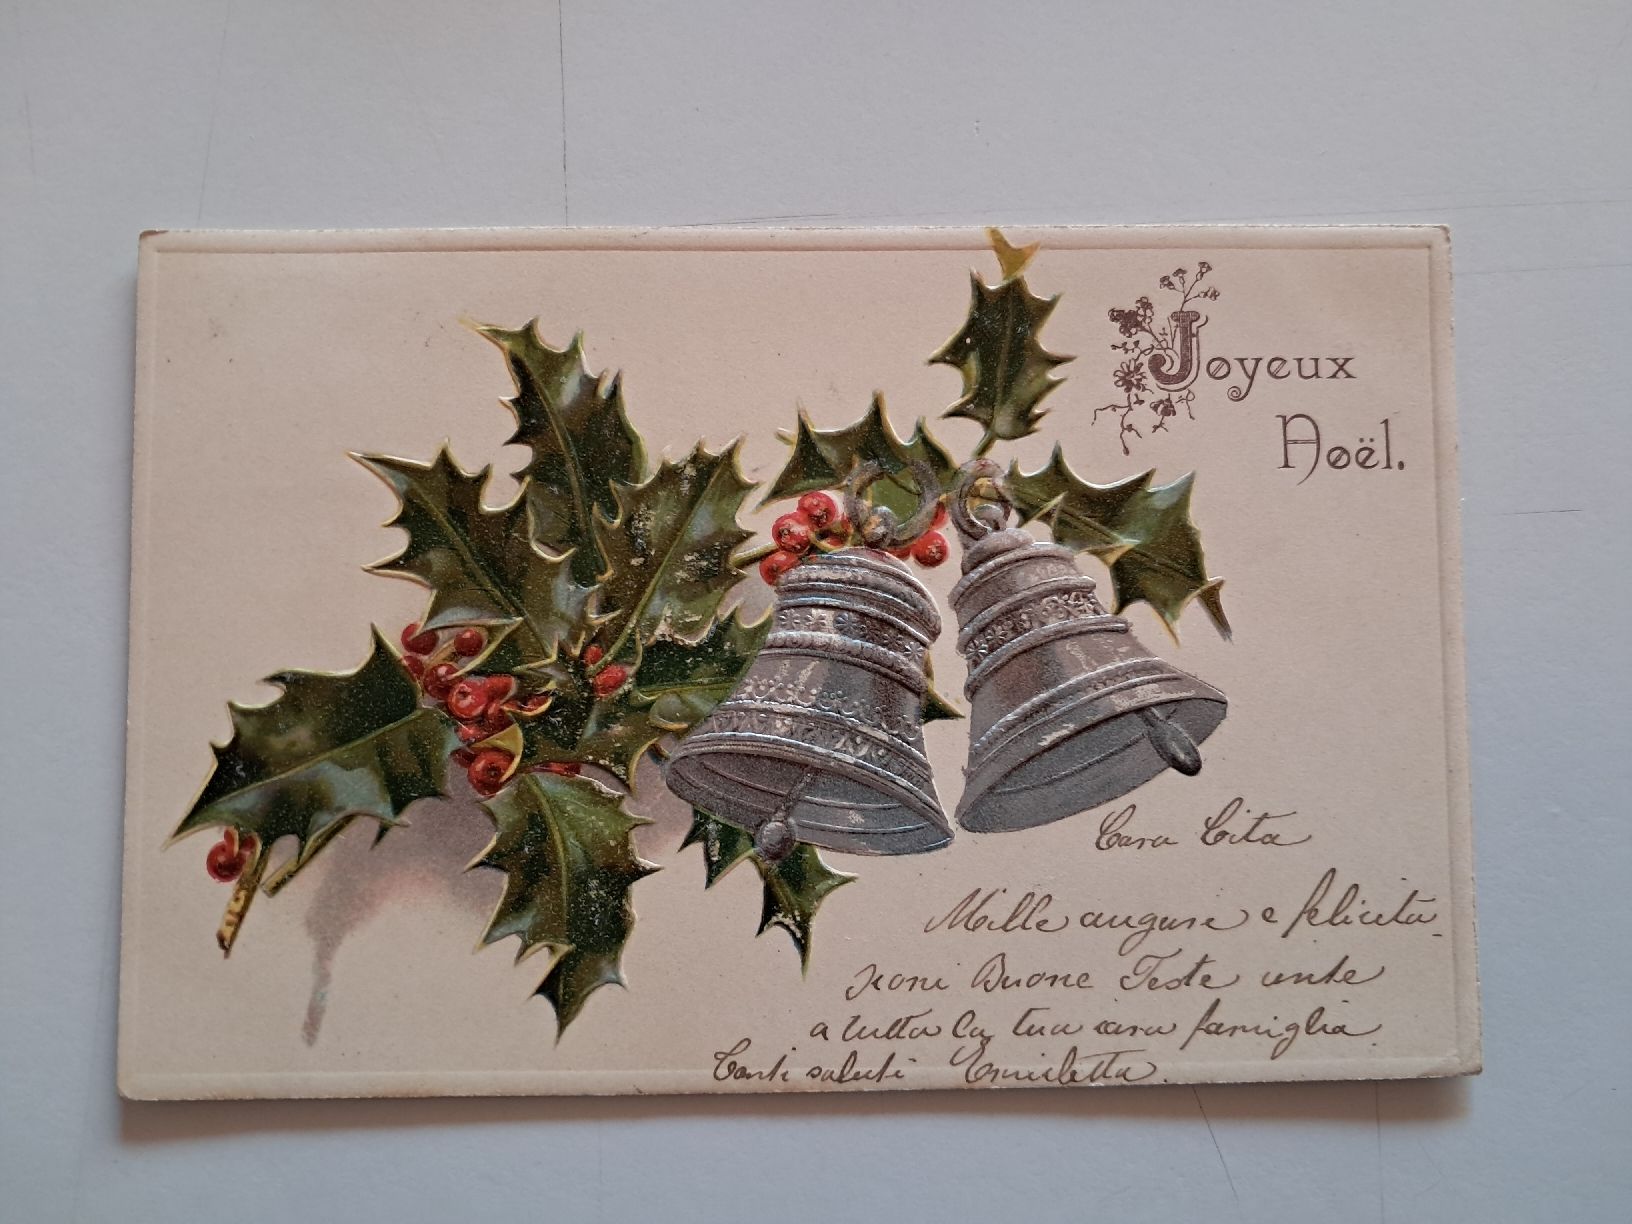 Joyeux
Noël.
Cara Cita
Mille auguri e felicita-
zioni Buone Feste unite
a tutta la tua cara famiglia.
Tanti saluti Emiletta.